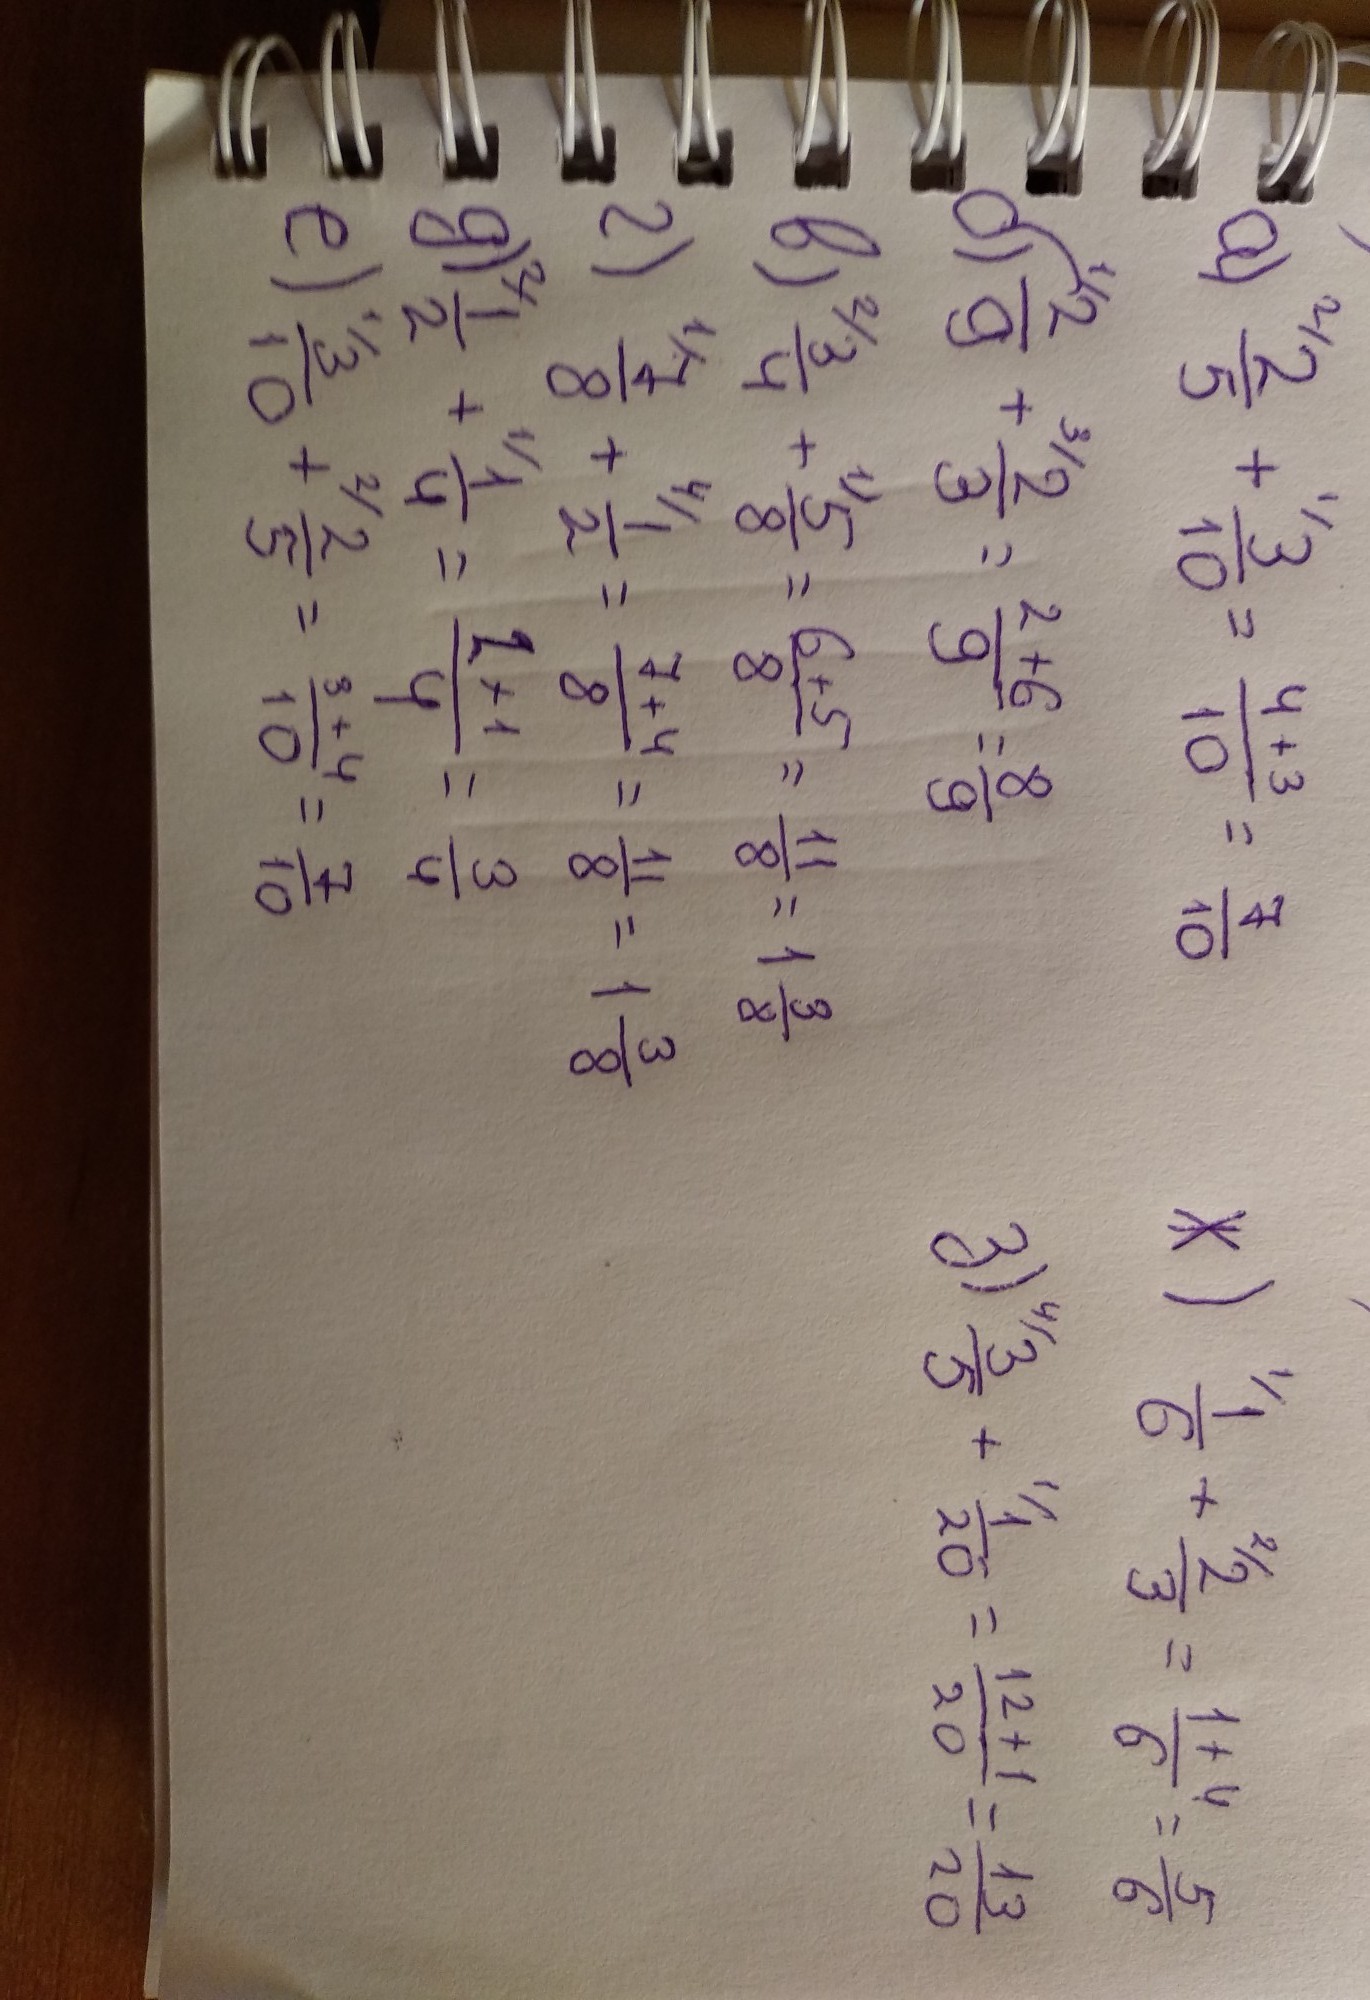 а) 2/ 2/5 + 1/ 3/10 = (4+3)/10 = 7/10
б) 1/ 2/9 + 3/ 2/3 = (2+6)/9 = 8/9
в) 2/ 3/4 + 1/ 5/8 = (6+5)/8 = 11/8 = 1 3/8
г) 1/ 7/8 + 4/ 1/2 = (7+4)/8 = 11/8 = 1 3/8
д) 2/ 1/2 + 1/ 1/4 = (2+1)/4 = 3/4
е) 1/ 3/10 + 2/ 2/5 = (3+4)/10 = 7/10
ж) 1/ 1/6 + 2/ 2/3 = (1+4)/6 = 5/6
з) 4/ 3/5 + 1/ 1/20 = (12+1)/20 = 13/20